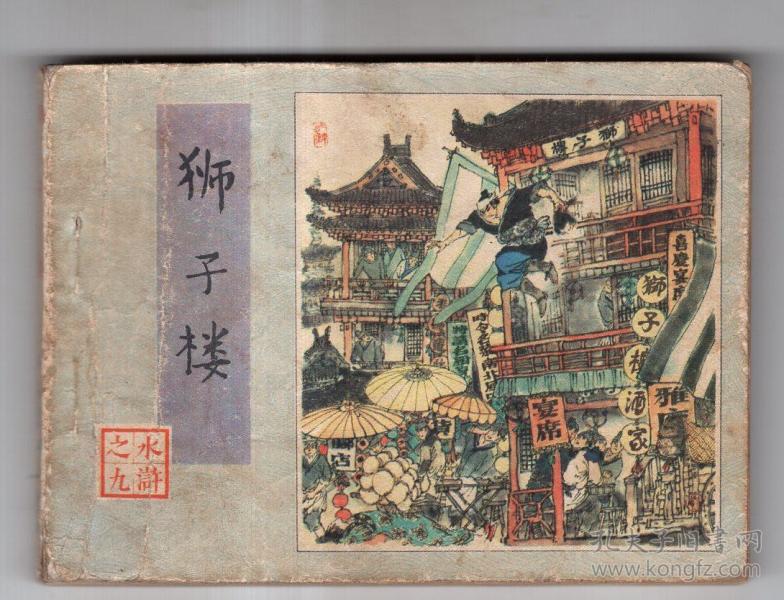 狮子楼
水浒之九
獅子樓
喜慶宴席
獅子樓酒家
雅座
宴席
孔夫子旧书网
www.kongfz.com